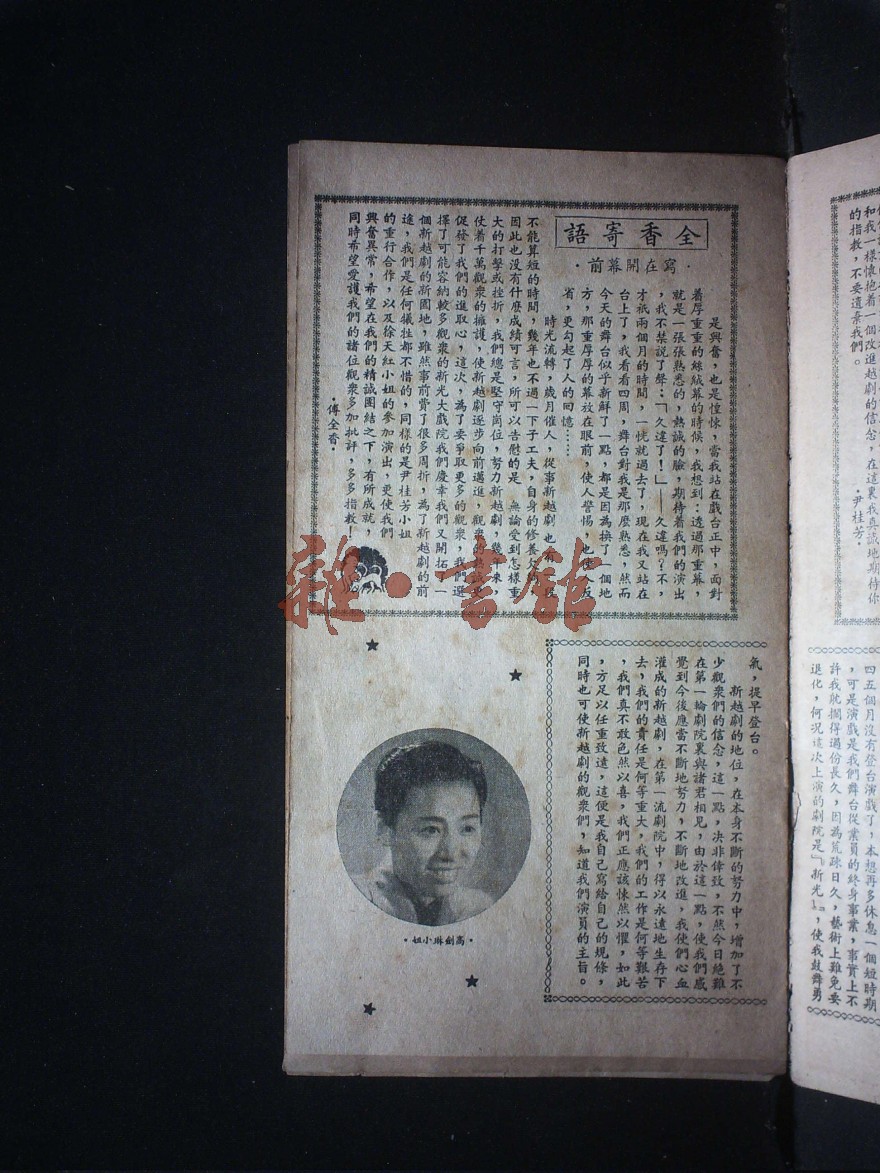 和我一樣懷抱着一個改進越劇的信念，在這裏我真誠地期待你
的指教，不要遺棄我們。
·尹桂芳·
四五個月沒有登台演戲了，本想再多休息一個短時期
，可是演戲是我們舞台從業員的終身事業，事實上不
許我就擱得過份長久，因為荒疎日久，藝術上難免要
退化，何況這次上演的劇院是『新光』，使我鼓舞勇
全香寄語
·寫在開幕前·
是興奮，也是惶悚，當我站在戲台正中，面對
着厚重重的絲絨幕的時候，我想到：透過那重幕，
就是一張張熟悉的，熱誠的臉，期待着我們的演出
，我不禁說了聲：「久違了！」——久違嗎？不，
才祇兩個月的時間，一恍就過去了，現在我又站在
台上了，我看看四周，舞台對我是那麼熟悉，然而
今天的舞台似乎新鮮了一點，都是因為換了一個地
方，那重厚厚的幕放在眼前，使人警惕，也使人反
省，更勾起了人的回憶……
時光流轉，歲月催人，從事新越劇也有一段
不能算短的時間，幾年也不過一下子工夫，自身的修養欠
因此也沒有什麼成績可言，所可以告慰的是，無論受到怎樣重
大的打擊或挫折，我們總是堅守崗位，努力新越劇，幾年來，
仗着千萬觀衆的擁護，使新越劇逐步向前邁進，觀衆的熱誠更
促發了我們的進取心，這次，為了要爭取更多的觀衆，我們選
擇了可能容納較多觀衆的新光大戲院我們慶幸我們又開拓了一
個新越劇的新園地，雖然事前費了很多周折，為了新越劇的前
途，我們是任何犧牲都不惜的，同樣的是尹桂芳小姐
的重行合作，以及徐天紅小姐的參加演出，更使我們
興奮異常，希望在我們的精誠團結之下，有所成就，
同時希望愛護我們的諸位觀衆多加批評，多多指教！
·傅全香·
氣，提早登台。
新越劇的地位，在本身不斷的努力中，增加了不
少觀衆們的信念，這一點，決非偉致，不然今日絕難
在第一輪劇院裏與諸君相見，由於這一點，使我們感
覺到今後應當不斷地努力，不斷地改進，我使們心血
灌成的新越劇，在第一流劇院中，得以永遠地生存下
去，我們的責任是何等重大，我們的工作是何等艱苦
，我們真不敢色然以喜，我們正應該悚然以懼，如此
，方足以任重致遠，這便是我自己寫給自己的規條，
同時也可使新越劇的觀衆們，知道我們演員的主旨。
·高劍琳小姐·
雜·書館